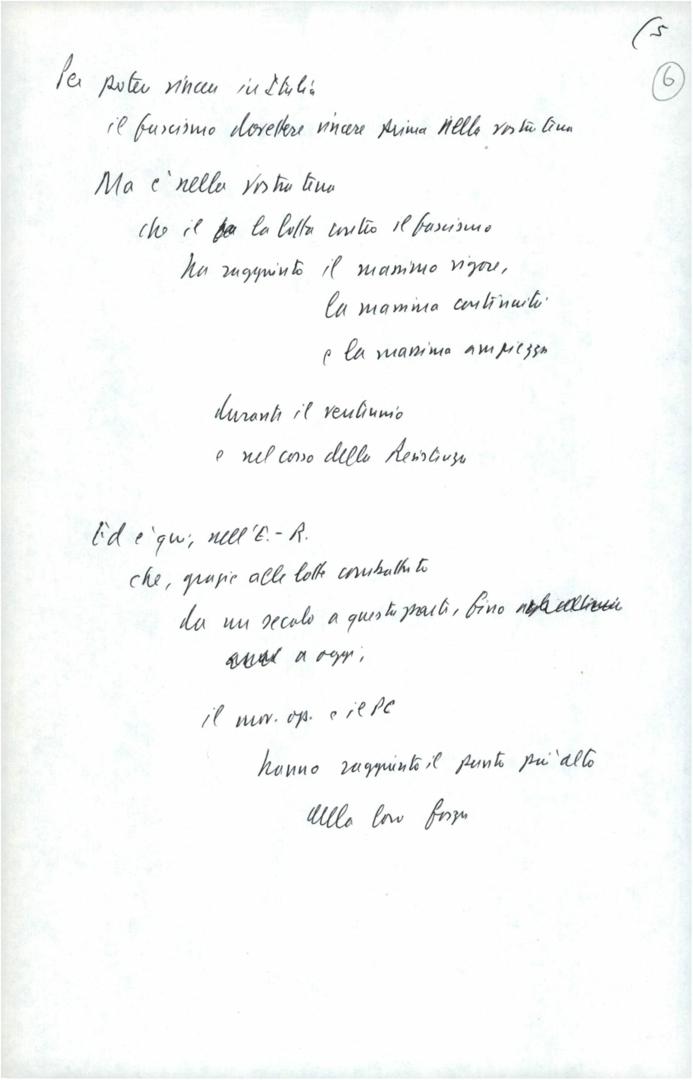 (5
6
Per poter vincere in Italia
il fascismo dovettere vincere prima nella vostra terra
Ma è nella vostra terra
che il la lotta contro il fascismo
ha raggiunto il massimo vigore,
la massima continuità
e la massima ampiezza
durante il ventennio
e nel corso della Resistenza
Ed è qui, nell'E.-R.
che, grazie alle lotte combattute
da un secolo a questa parte, fino
a oggi,
il mov. op. e il PC
hanno raggiunto il punto più alto
della loro forza